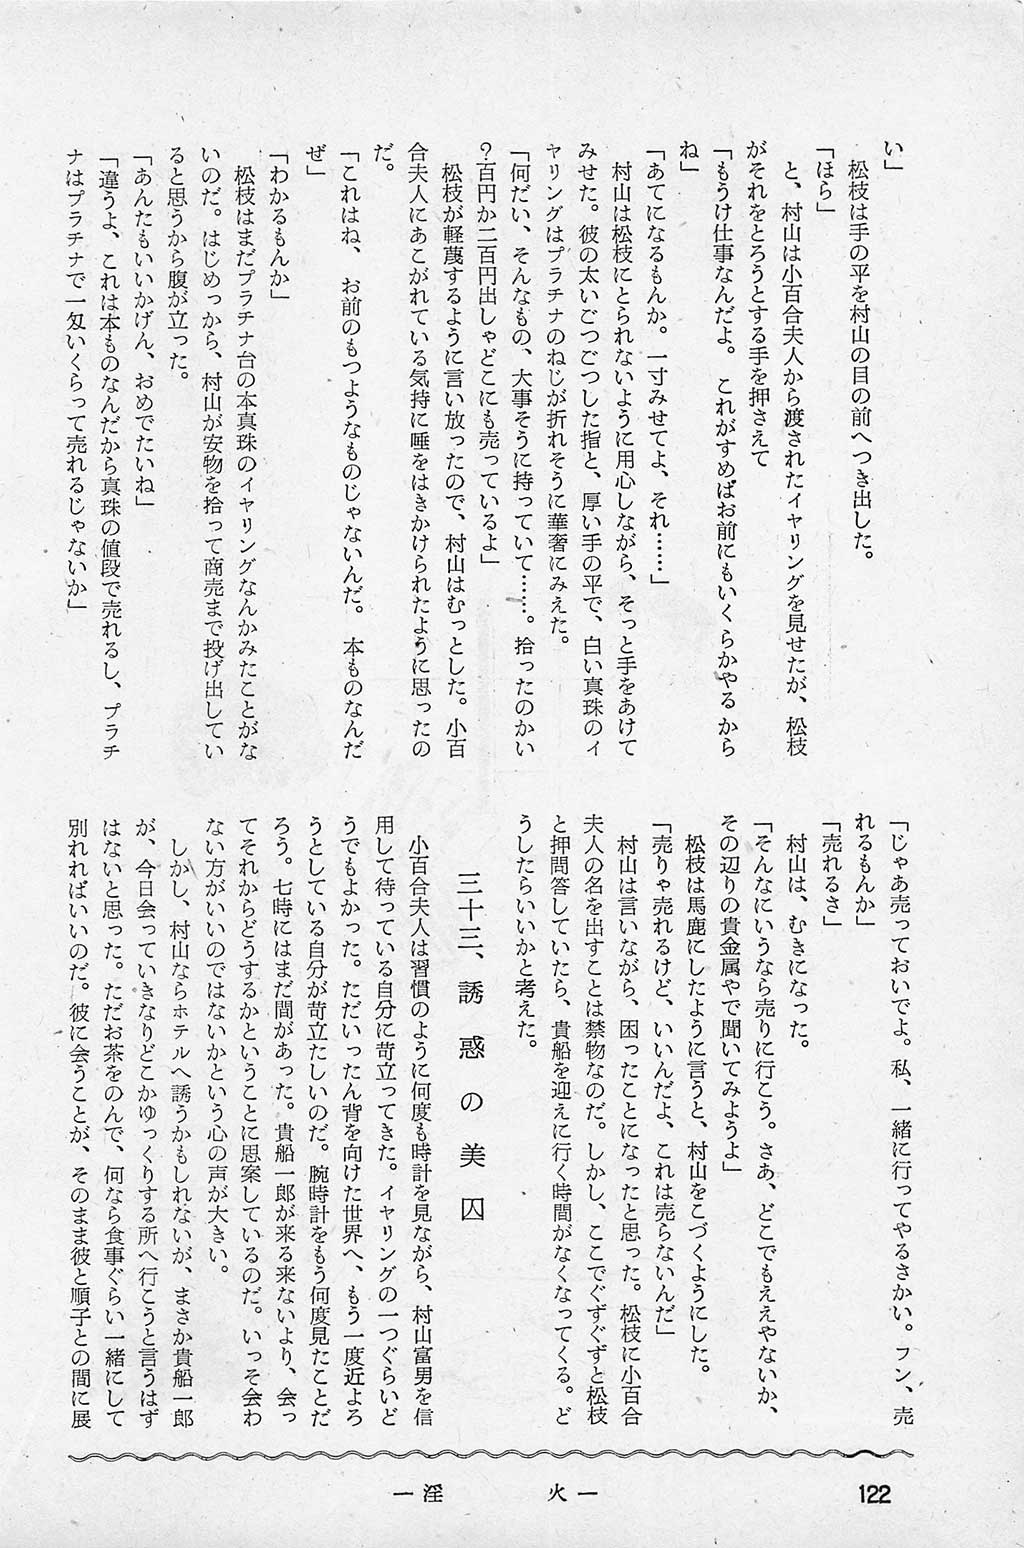 い」
　松枝は手の平を村山の目の前へつき出した。
「ほら」
　と、村山は小百合夫人から渡されたイヤリングを見せたが、松枝
がそれをとろうとする手を押さえて
「もうけ仕事なんだよ。これがすめばお前にもいくらかやるから
ね」
「あてになるもんか。一寸みせてよ、それ……」
　村山は松枝にとられないように用心しながら、そっと手をあけて
みせた。彼の太いごつごつした指と、厚い手の平で、白い真珠のイ
ヤリングはプラチナのねじが折れそうに華奢にみえた。
「何だい、そんなもの、大事そうに持っていて……。拾ったのかい
？百円か二百円出しゃどこにも売っているよ」
　松枝が軽蔑するように言い放ったので、村山はむっとした。小百
合夫人にあこがれている気持に唾をはきかけられたように思ったの
だ。
「これはね、お前のもつようなものじゃないんだ。本ものなんだ
ぜ」
「わかるもんか」
　松枝はまだプラチナ台の本真珠のイヤリングなんかみたことがな
いのだ。はじめっから、村山が安物を拾って商売まで投げ出してい
ると思うから腹が立った。
「あんたもいいかげん、おめでたいね」
「違うよ、これは本ものなんだから真珠の値段で売れるし、プラチ
ナはプラチナで一匁いくらって売れるじゃないか」
「じゃあ売っておいでよ。私、一緒に行ってやるさかい。フン、売
れるもんか」
「売れるさ」
　村山は、むきになった。
「そんなにいうなら売りに行こう。さあ、どこでもええやないか、
その辺りの貴金属やで聞いてみようよ」
　松枝は馬鹿にしたように言うと、村山をこづくようにした。
「売りゃ売れるけど、いいんだよ、これは売らないんだ」
　村山は言いながら、困ったことになったと思った。松枝に小百合
夫人の名を出すことは禁物なのだ。しかし、ここでぐずぐずと松枝
と押問答していたら、貴船を迎えに行く時間がなくなってくる。ど
うしたらいいかと考えた。
三十三、誘惑の美囚
　小百合夫人は習慣のように何度も時計を見ながら、村山富男を信
用して待っている自分に苛立ってきた。イヤリングの一つぐらいど
うでもよかった。ただいったん背を向けた世界へ、もう一度近よろ
うとしている自分が苛立たしいのだ。腕時計をもう何度見たことだ
ろう。七時にはまだ間があった。貴船一郎が来る来ないより、会っ
てそれからどうするかということに思案しているのだ。いっそ会わ
ない方がいいのではないかという心の声が大きい。
　しかし、村山ならホテルへ誘うかもしれないが、まさか貴船一郎
が、今日会っていきなりどこかゆっくりする所へ行こうと言うはず
はないと思った。ただお茶をのんで、何なら食事ぐらい一緒にして
別れればいいのだ。彼に会うことが、そのまま彼と順子との間に展
―淫　火―
122